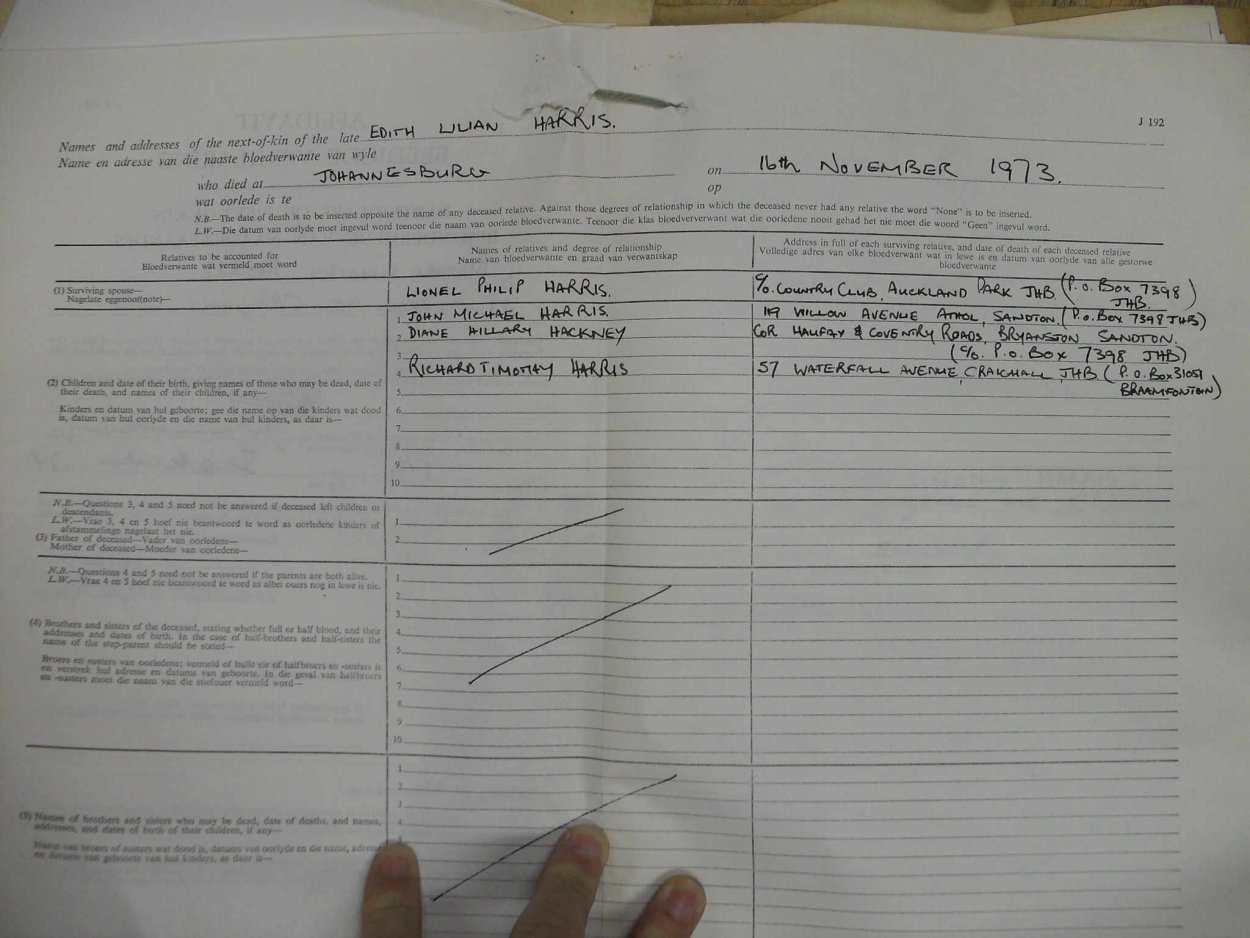 J 192
Names and addresses of the next-of-kin of the late EDITH LILIAN HARRIS.
Name en adresse van die naaste bloedverwante van wyle
who died at JOHANNESBURG on 16th NOVEMBER 1973.
wat oorlede is te op
N.B.—The date of death is to be inserted opposite the name of any deceased relative. Against those degrees of relationship in which the deceased never had any relative the word "None" is to be inserted.
L.W.—Die datum van oorlyde moet ingevul word teenoor die naam van oorlede bloedverwante. Teenoor die klas bloedververwant wat die oorledene nooit gehad het nie moet die woord "Geen" ingevul word.
Relatives to be accounted for
Bloedverwante wat vermeld moet word
Names of relatives and degree of relationship
Name van bloedverwante en graad van verwantskap
Address in full of each surviving relative, and date of death of each deceased relative
Volledige adres van elke bloedverwant wat in lewe is en datum van oorlyde van alle gestorwe
bloedverwante
(1) Surviving spouse—
Nagelate eggenoot(note)—
LIONEL PHILIP HARRIS.
C/o. COUNTRY CLUB, AUCKLAND PARK JHB (P.O. BOX 7398
JHB.)
1 JOHN MICHAEL HARRIS.
119 WILLOW AVENUE ATHOL, SANDTON. (P.O. BOX 7398 JHB)
2 DIANE HILLARY HACKNEY
COR HALIFAX & COVENTRY ROADS, BRYANSTON SANDTON.
3
(C/o. P.O. BOX 7398 JHB)
4 RICHARD TIMOTHY HARRIS
57 WATERFALL AVENUE, CRAIGHALL, JHB (P.O. BOX 31051
BRAAMFONTEIN)
(2) Children and date of their birth, giving names of those who may be dead, date of
their death, and names of their children, if any—
Kinders en datum van hul geboorte; gee die name op van die kinders wat dood
is, datum van hul oorlyde en die name van hul kinders, as daar is—
5
6
7
8
9
10
N.B.—Questions 3, 4 and 5 need not be answered if deceased left children or
descendants.
L.W.—Vrae 3, 4 en 5 hoef nie beantwoord te word as oorledene kinders of
afstammelinge nagelaat het nie.
(3) Father of deceased—Vader van oorledene—
Mother of deceased—Moeder van oorledene—
1
2
N.B.—Questions 4 and 5 need not be answered if the parents are both alive.
L.W.—Vrae 4 en 5 hoef nie beantwoord te word as albei ouers nog in lewe is nie.
(4) Brothers and sisters of the deceased, stating whether full or half blood, and their
addresses and dates of birth. In the case of half-brothers and half-sisters the
name of the step-parent should be stated—
Broers en susters van oorledene; vermeld of hulle vle of halfbroers en -susters is
en verstrek hul adresse en datums van geboorte. In die geval van halfbroers
en -susters moet die naam van die stiefouer vermeld word—
1
2
3
4
5
6
7
8
9
10
(5) Names of brothers and sisters who may be dead, date of deaths, and names,
addresses, and dates of birth of their children, if any—
Name van broers of susters wat dood is, datums van oorlyde en die name, adresse
en datums van geboorte van hul kinders, as daar is—
1
2
3
4